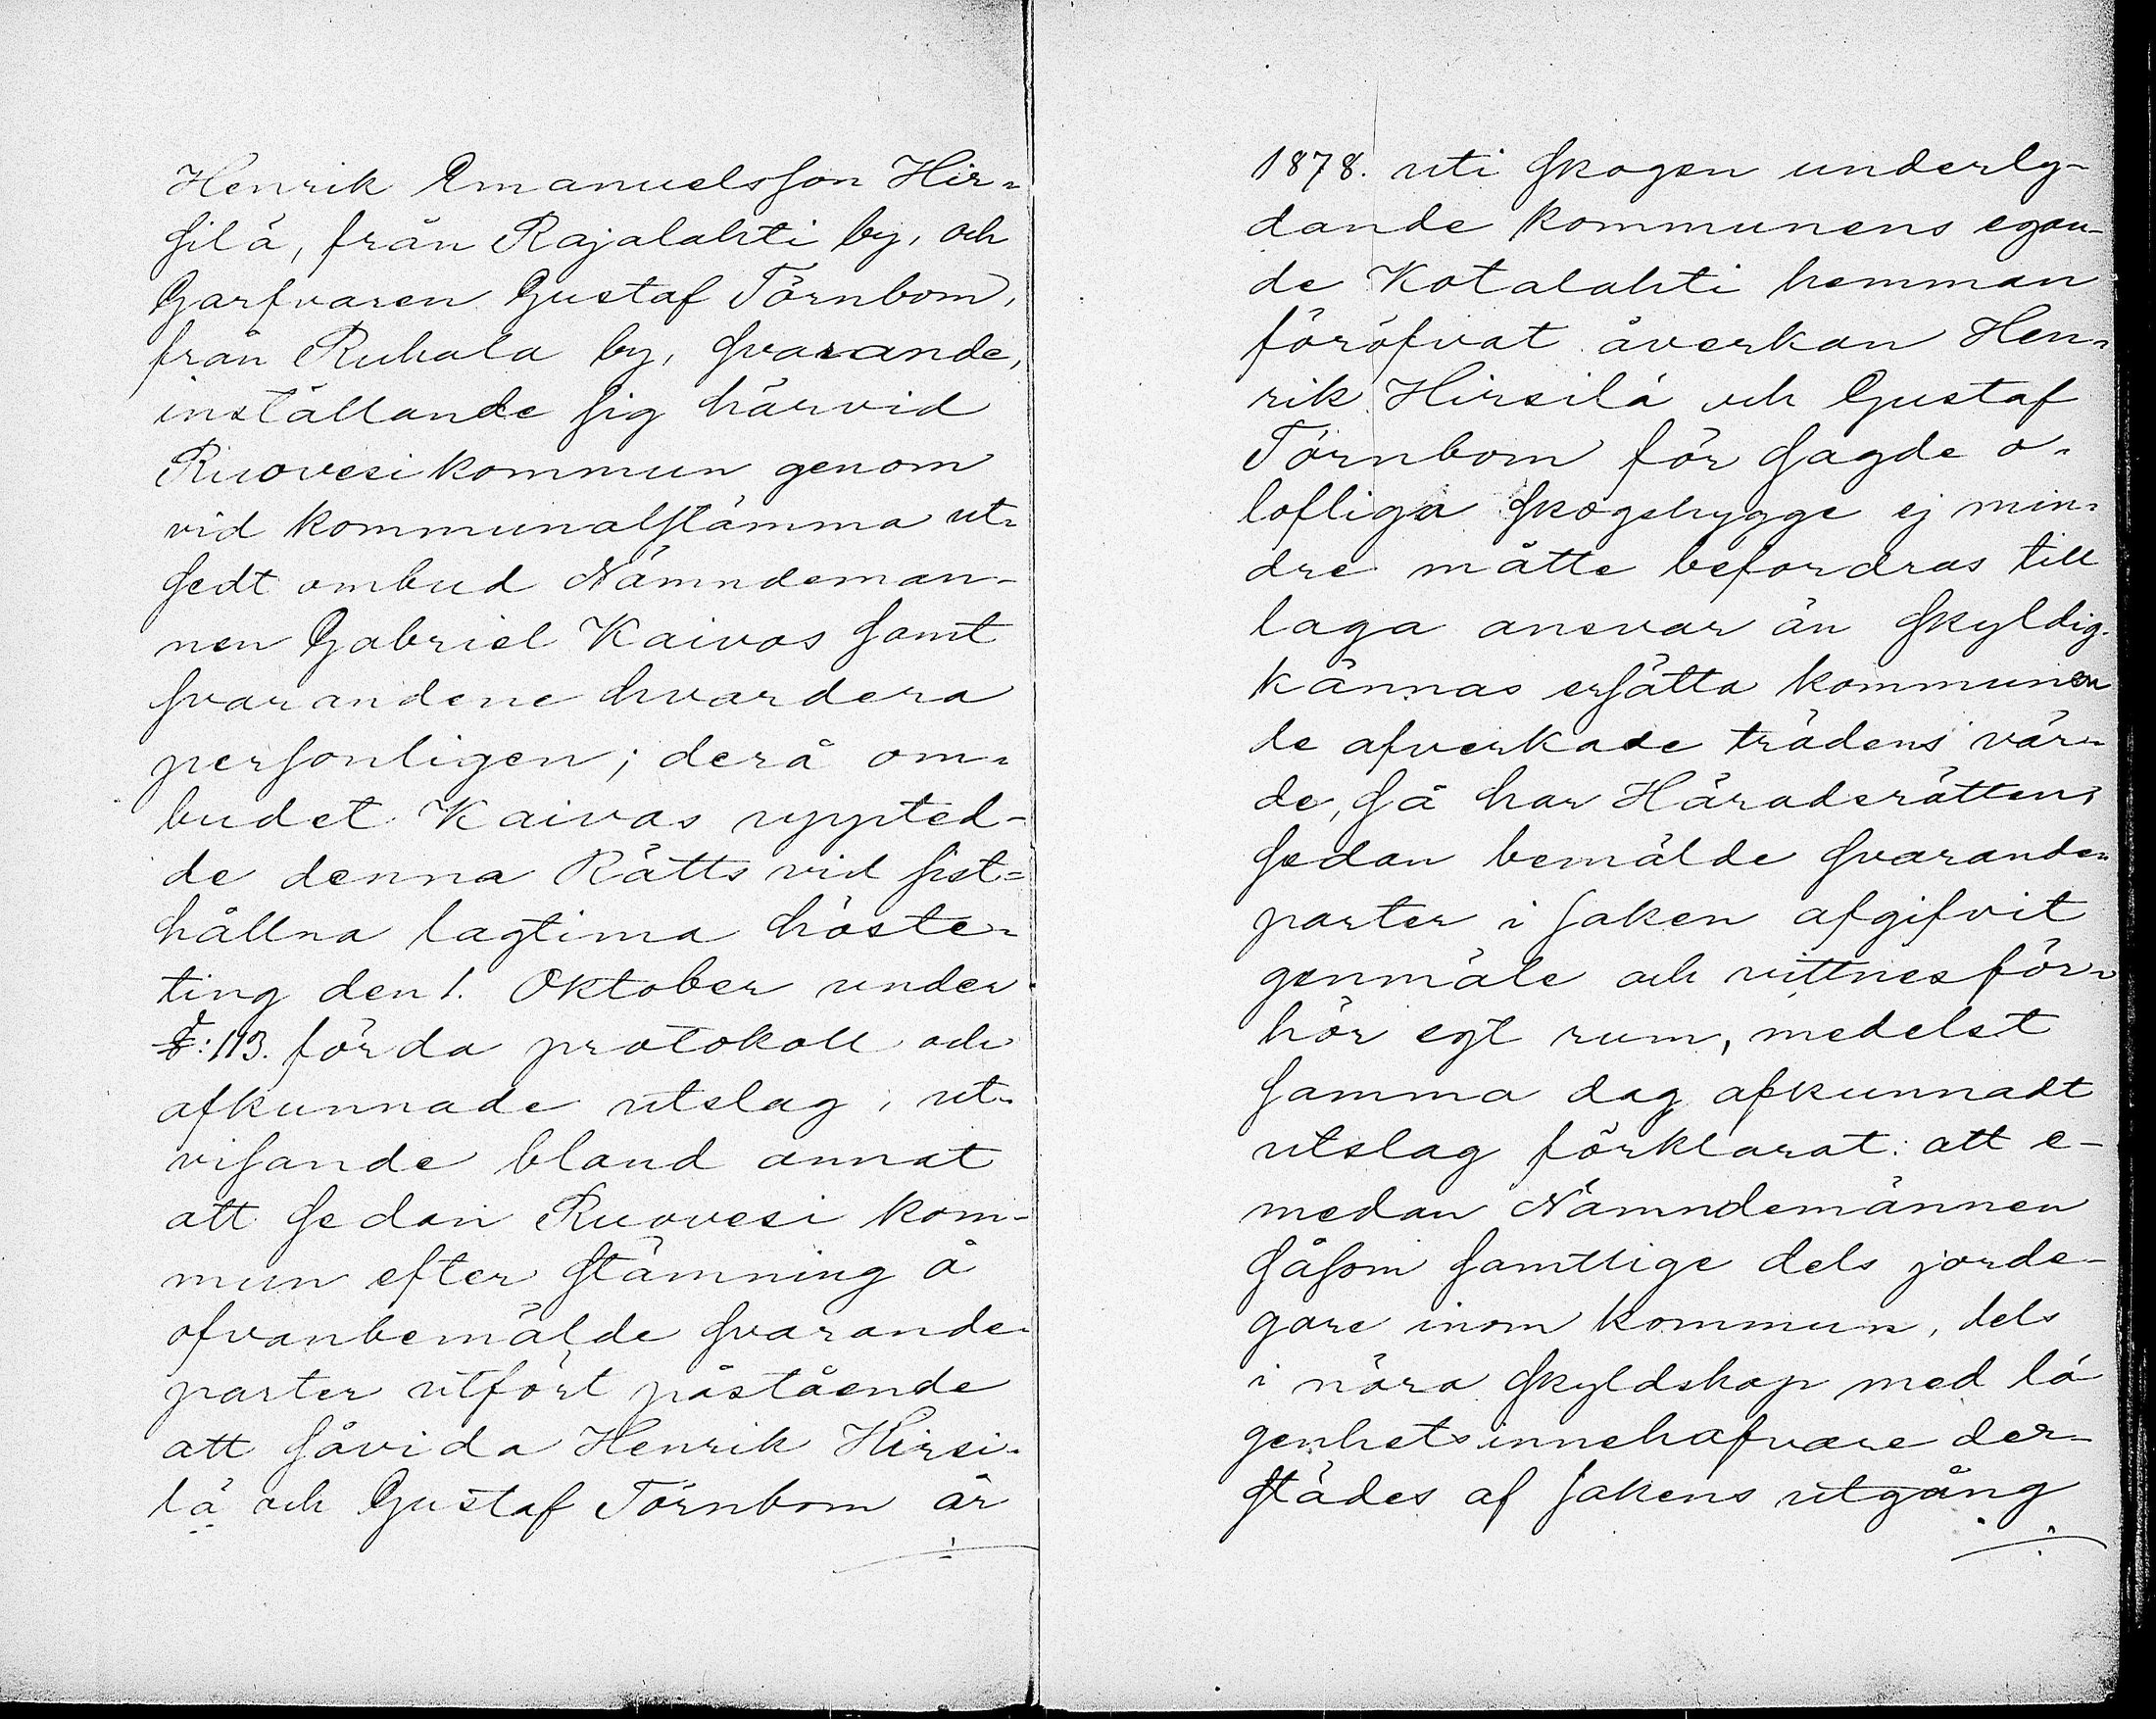 Henrik Emanuelsson Hir-
silä, från Rajalahti by, och
Garfvaren Gustaf Törnbom,
från Ruhala by, svarande,
inställande sig härvid
Ruovesi kommun genom
vid kommunalstämma ut-
sedt ombud Nämndeman-
nen Gabriel Kaivos samt
svarandene hvardera
personligen; derå om-
budet Kaivas uppted-
de denna Rätts vid sist-
hållna lagtima höste-
ting den 1. Oktober under
§: 113. förda protokoll och
afkunnade utslag, ut-
visande bland annat
att sedan Ruovesi kom-
mun efter stämning å
ofvanbemälde svarande-
parter utfört påstående
att såvida Henrik Hirsi-
lä och Gustaf Törnbom år
1878. uti skogen underly-
dande kommunens egan-
de Kotalahti hemman
föröfvat åverkan Hen-
rik Hirsilä och Gustaf
Törnbom för sagde o-
lofliga skogshygge ej min-
dre måtte befordras till
laga ansvar än skyldig
kännas ersätta kommunen
de afverkade trädens vär-
de, så har Häradsrätten,
sedan bemälde svarande-
parter i saken afgifvit
genmäle och vittnesför-
hör egt rum, medelst
samma dag afkunnadt
utslag förklarat: att e-
medan Nämndemännen
såsom samtlige dels jorde-
gare inom kommun, dels
i nära skyldskap med lä-
genhetsinnehafvare der-
städes af sakens utgång